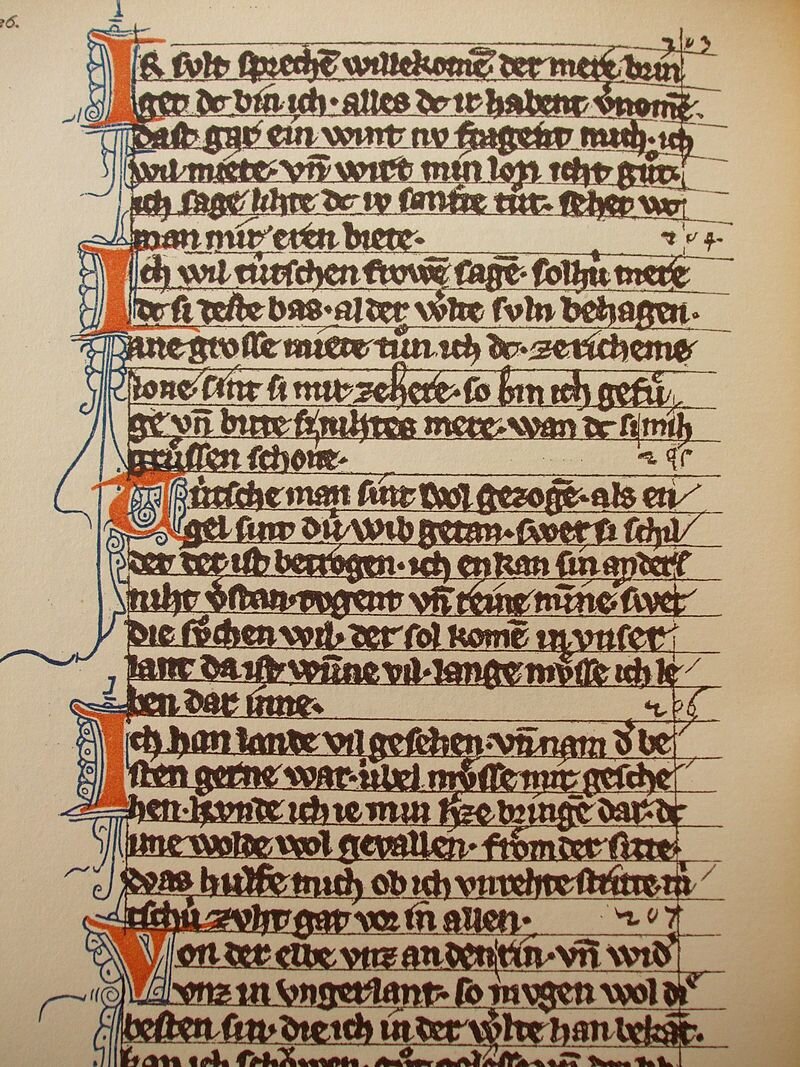 26.
203
IR svlt sprechē willekomē der mere brin
get dc bin ich · alles dc ir habent v̾nomē ·
dast gar ein wint nv fragent mich · ich
wil miete · vn̄ wirt min lon icht gůt ·
ich sage lihte dc iv sanfte tůt · sehet wc
man mir eren biete ·
204
Ich wil tútschen frowē sagē · solhú mere
dc si deste bas · al der w̾lte svln behagen ·
ane grosse miete tůn ich dc · ze richeme
lone sint si mir ze here · so bin ich gefů
ge vn̄ bitte si nihtes mere · wan dc si mih
grůssen schone ·
205
Tútsche man sint wol gezogē · als en
gel sint dú wib getan · swer si schil
det der ist betrogen · ich enkan sin anders
niht v̾stan · tvgent vn̄ reine mīne · swer
die sůchen wil · der sol komē in vnser
lant da ist wūne vil · lange mvͤsse ich le
ben dar inne ·
206
Ich han lande vil gesehen · vn̄ nam d̾ be
sten gerne war · úbel mvͤsse mir gesche
hen · kvnde ich ie min h̾ze bringē dar · dc
ime wolde wol gevallen · frömder sitte ·
was hulfe mich ob ich vnrehte stritte · tú
tschú zvht gat vor in allen ·
207
Von der elbe vnz an den rin · vn̄ wid̾
vnz in vngerlant · so mvgen wol die
besten sin · die ich in der w̾lte han bekāt ·
kan ich schöwen · gůt gelässe vn̄